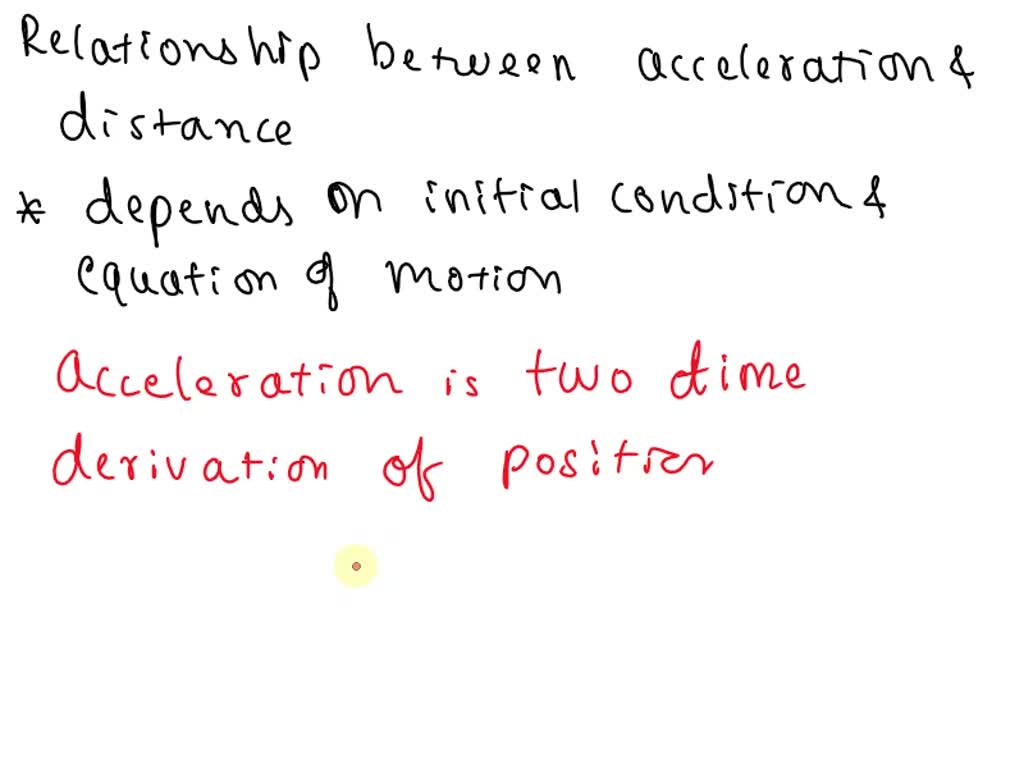 Relationship between acceleration &
distance
* depends on initial condition &
equation of motion
Acceleration is two time
derivation of position